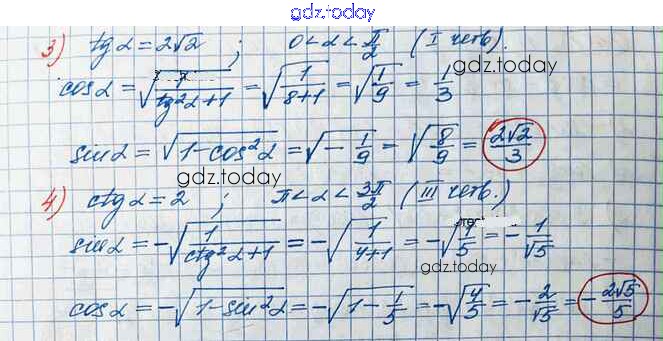 gdz.today
3) tg α = 2√2 ; 0 < α < π/2 (I четв).
gdz.today
cos α = √(1/(tg²α+1)) = √(1/(8+1)) = √(1/9) = 1/3
sin α = √(1-cos²α) = √(-1/9) - √(8/9) = 2√2/3
gdz.today
4) ctg α = 2 ; π < α < 3π/2 (III четв.)
sin α = -√(1/(ctg²α+1)) = -√(1/(4+1)) = -√(1/5) = -1/√5
gdz.today
cos α = -√(1-sin²α) = -√(1-1/5) = -√(4/5) = -2/√5 = -2√5/5